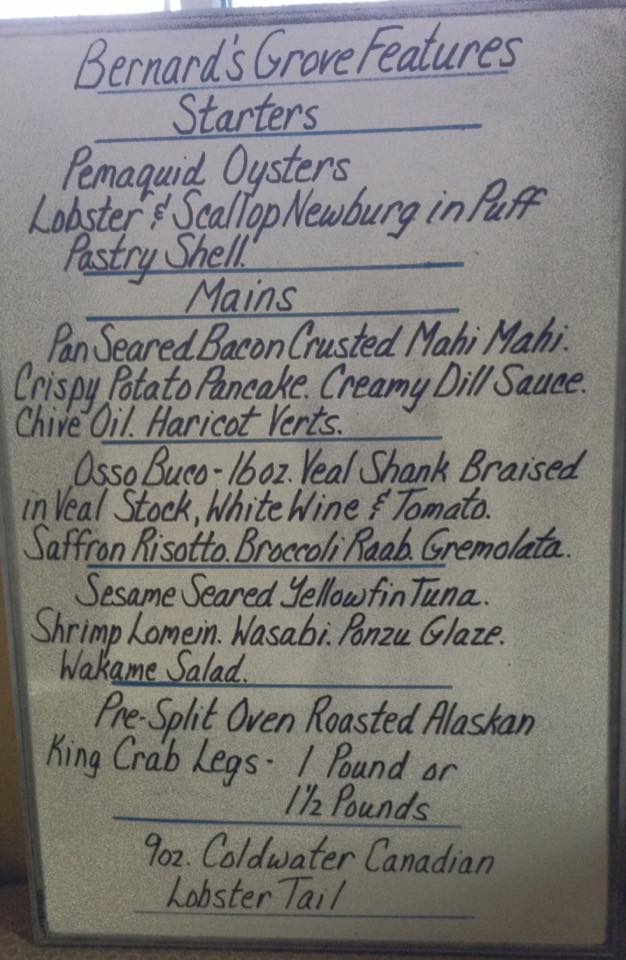 Bernard's Grove Features
Starters
Pemaquid Oysters
Lobster & Scallop Newburg in Puff
Pastry Shell.
Mains
Pan Seared Bacon Crusted Mahi Mahi.
Crispy Potato Pancake. Creamy Dill Sauce.
Chive Oil. Haricot Verts.
Osso Buco - 16oz. Veal Shank Braised
in Veal Stock, White Wine & Tomato.
Saffron Risotto. Broccoli Raab. Gremolata.
Sesame Seared Yellowfin Tuna.
Shrimp Lomein. Wasabi. Ponzu Glaze.
Wakame Salad.
Pre-Split Oven Roasted Alaskan
King Crab Legs - 1 Pound or
1½ Pounds
9oz. Coldwater Canadian
Lobster Tail